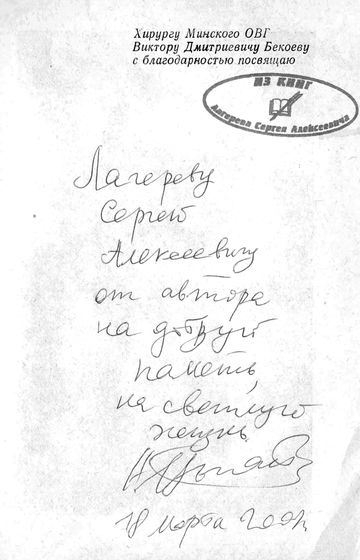 Хирургу Минского ОВГ
Виктору Дмитриевичу Бекоеву
с благодарностью посвящаю
ИЗ КНИГ
Лагерева Сергея Алексеевича
Лагереву
Сергею
Алексеевичу
от автора
на добрую
память,
на светлую
жизнь
18 марта